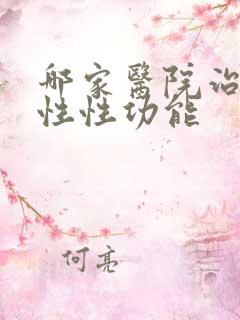 郍家醫院治
性性功能
何亮